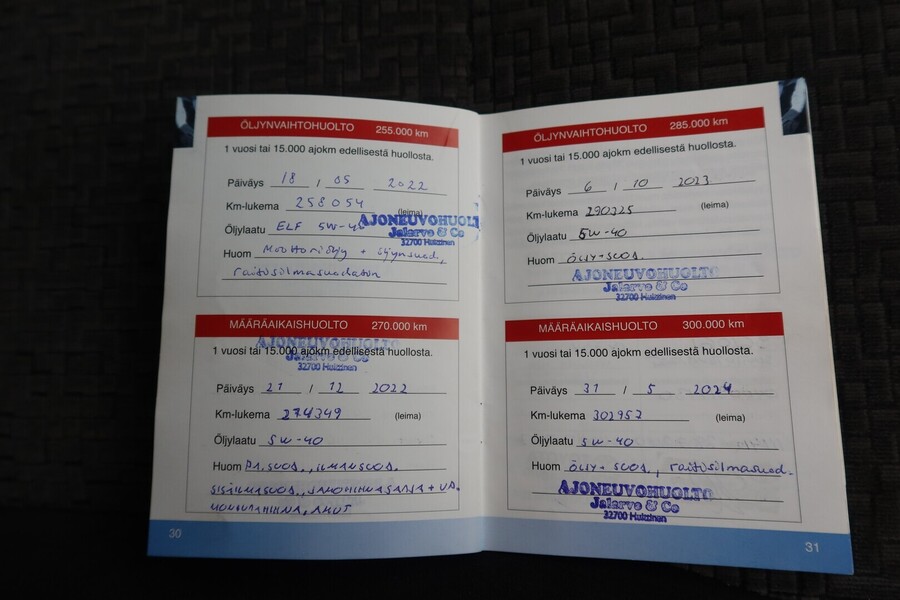 ÖLJYNVAIHTOHUOLTO 255.000 km
1 vuosi tai 15.000 ajokm edellisestä huollosta.
Päiväys 18 / 05 2022
Km-lukema 258054 (leima)
Öljylaatu ELF 5W-40
AJONEUVOHUOLTO
Jalarvo & Co
32700 Huittinen
Huom Moottoriöljy + öljynsuod,
raitisilmasuodatin
MÄÄRÄAIKAISHUOLTO 270.000 km
AJONEUVOHUOLTO
1 vuosi tai 15.000 ajokm edellisestä huollosta.
Jalarvo & Co
32700 Huittinen
Päiväys 21 / 12 2022
Km-lukema 274349 (leima)
Öljylaatu 5W-40
Huom PA.SUOD., ILMANSUOD.
SISÄILMASUOD., JAKOHIHNASARJA + VP.
MONIURAHIHNA, AKUT
30
ÖLJYNVAIHTOHUOLTO 285.000 km
1 vuosi tai 15.000 ajokm edellisestä huollosta.
Päiväys 6 / 10 2023
Km-lukema 290325 (leima)
Öljylaatu 5W-40
Huom ÖLJY+SUOD.
AJONEUVOHUOLTO
Jalarvo & Co
32700 Huittinen
MÄÄRÄAIKAISHUOLTO 300.000 km
1 vuosi tai 15.000 ajokm edellisestä huollosta.
Päiväys 31 / 5 2024
Km-lukema 302952 (leima)
Öljylaatu 5W-40
Huom ÖLJY+ SUOD, raitisilmasuod.
AJONEUVOHUOLTO
Jalarvo & Co
32700 Huittinen
31